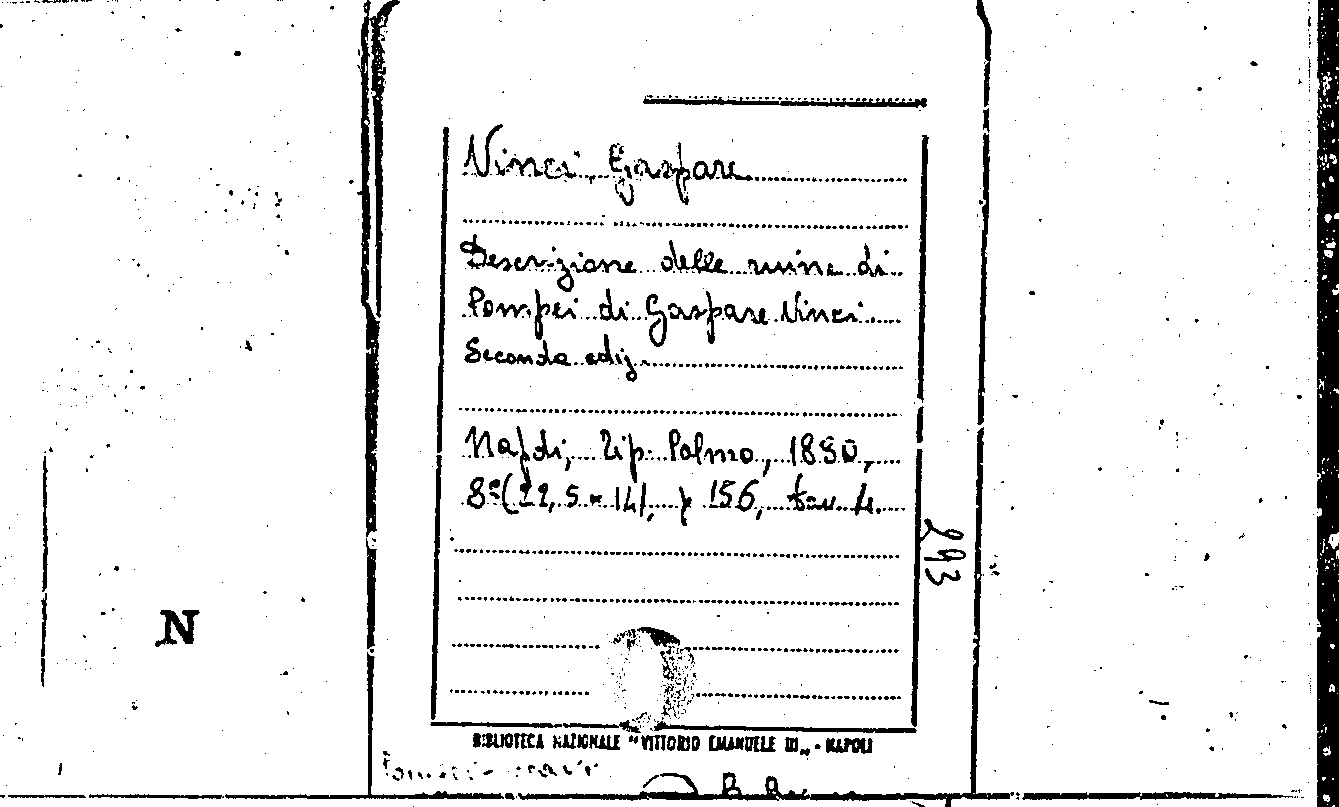 Vinci, Gaspare
Descrizione delle ruine di
Pompei di Gaspare Vinci.
Seconda ediz.
Napoli, Tip. Palma, 1830,
8º (22,5 x 14), p 156, tav. 4.
293
N
BIBLIOTECA NAZIONALE "VITTORIO EMANUELE III„ - NAPOLI